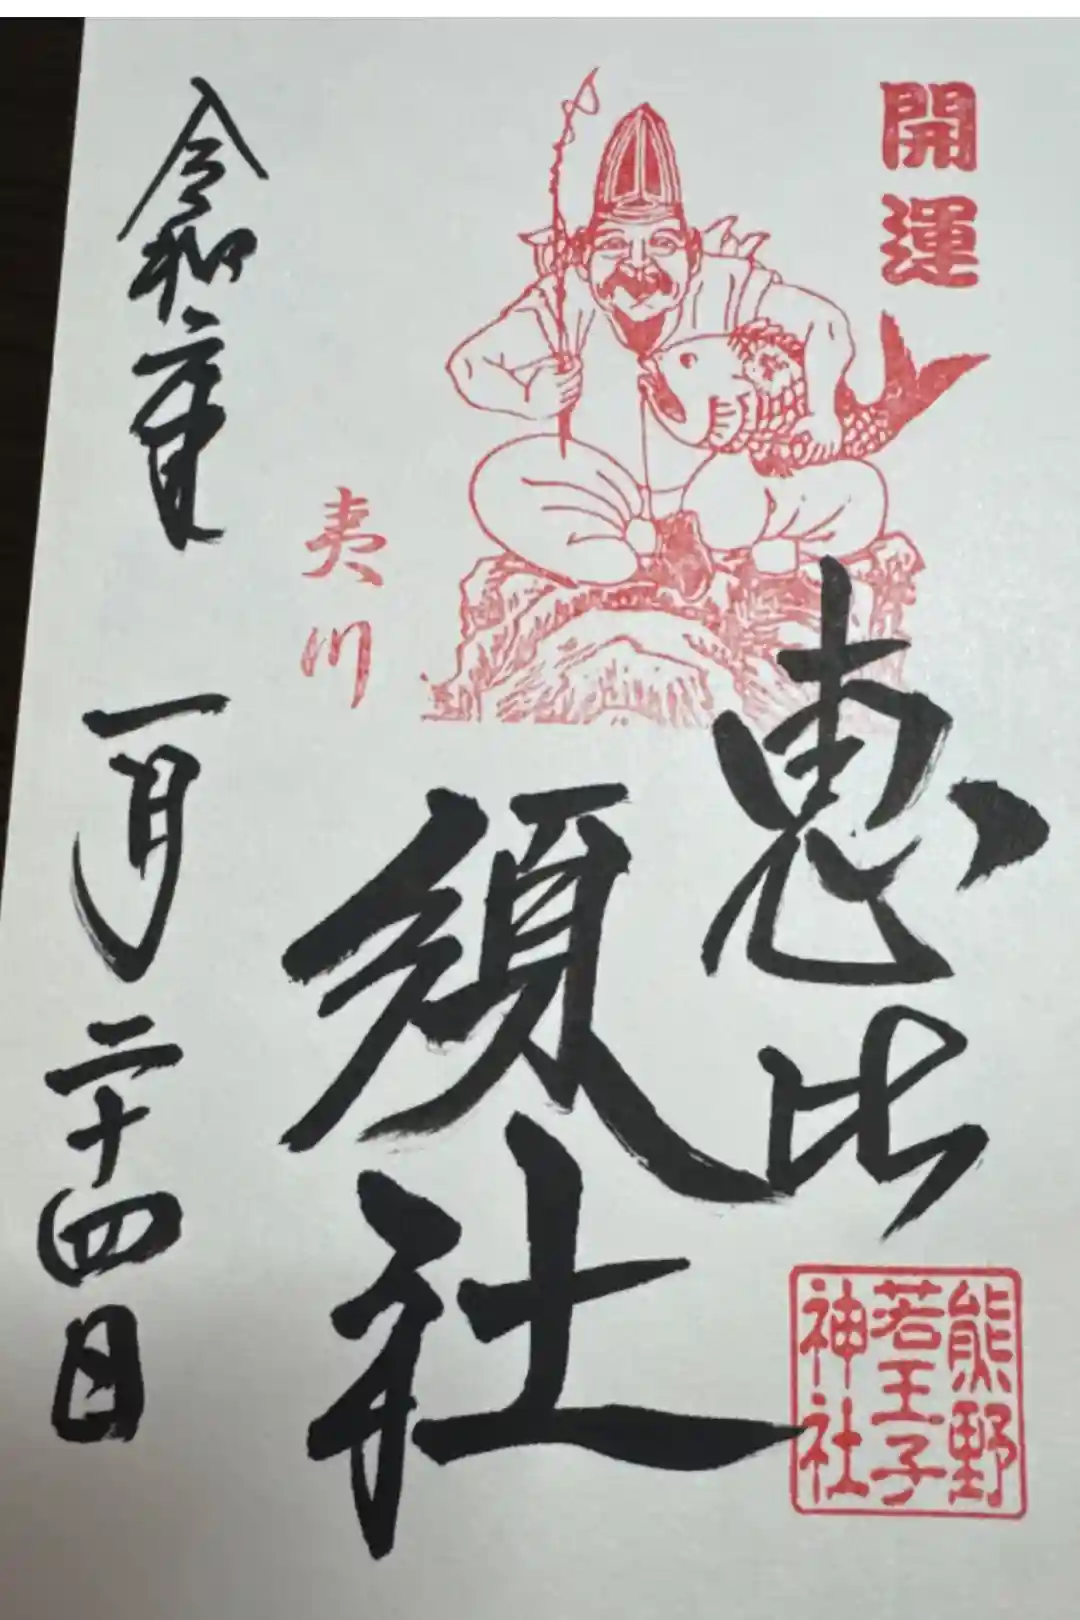 開運
恵比
須社
夷川
令和六年
一月二十四日
熊野
若王子
神社